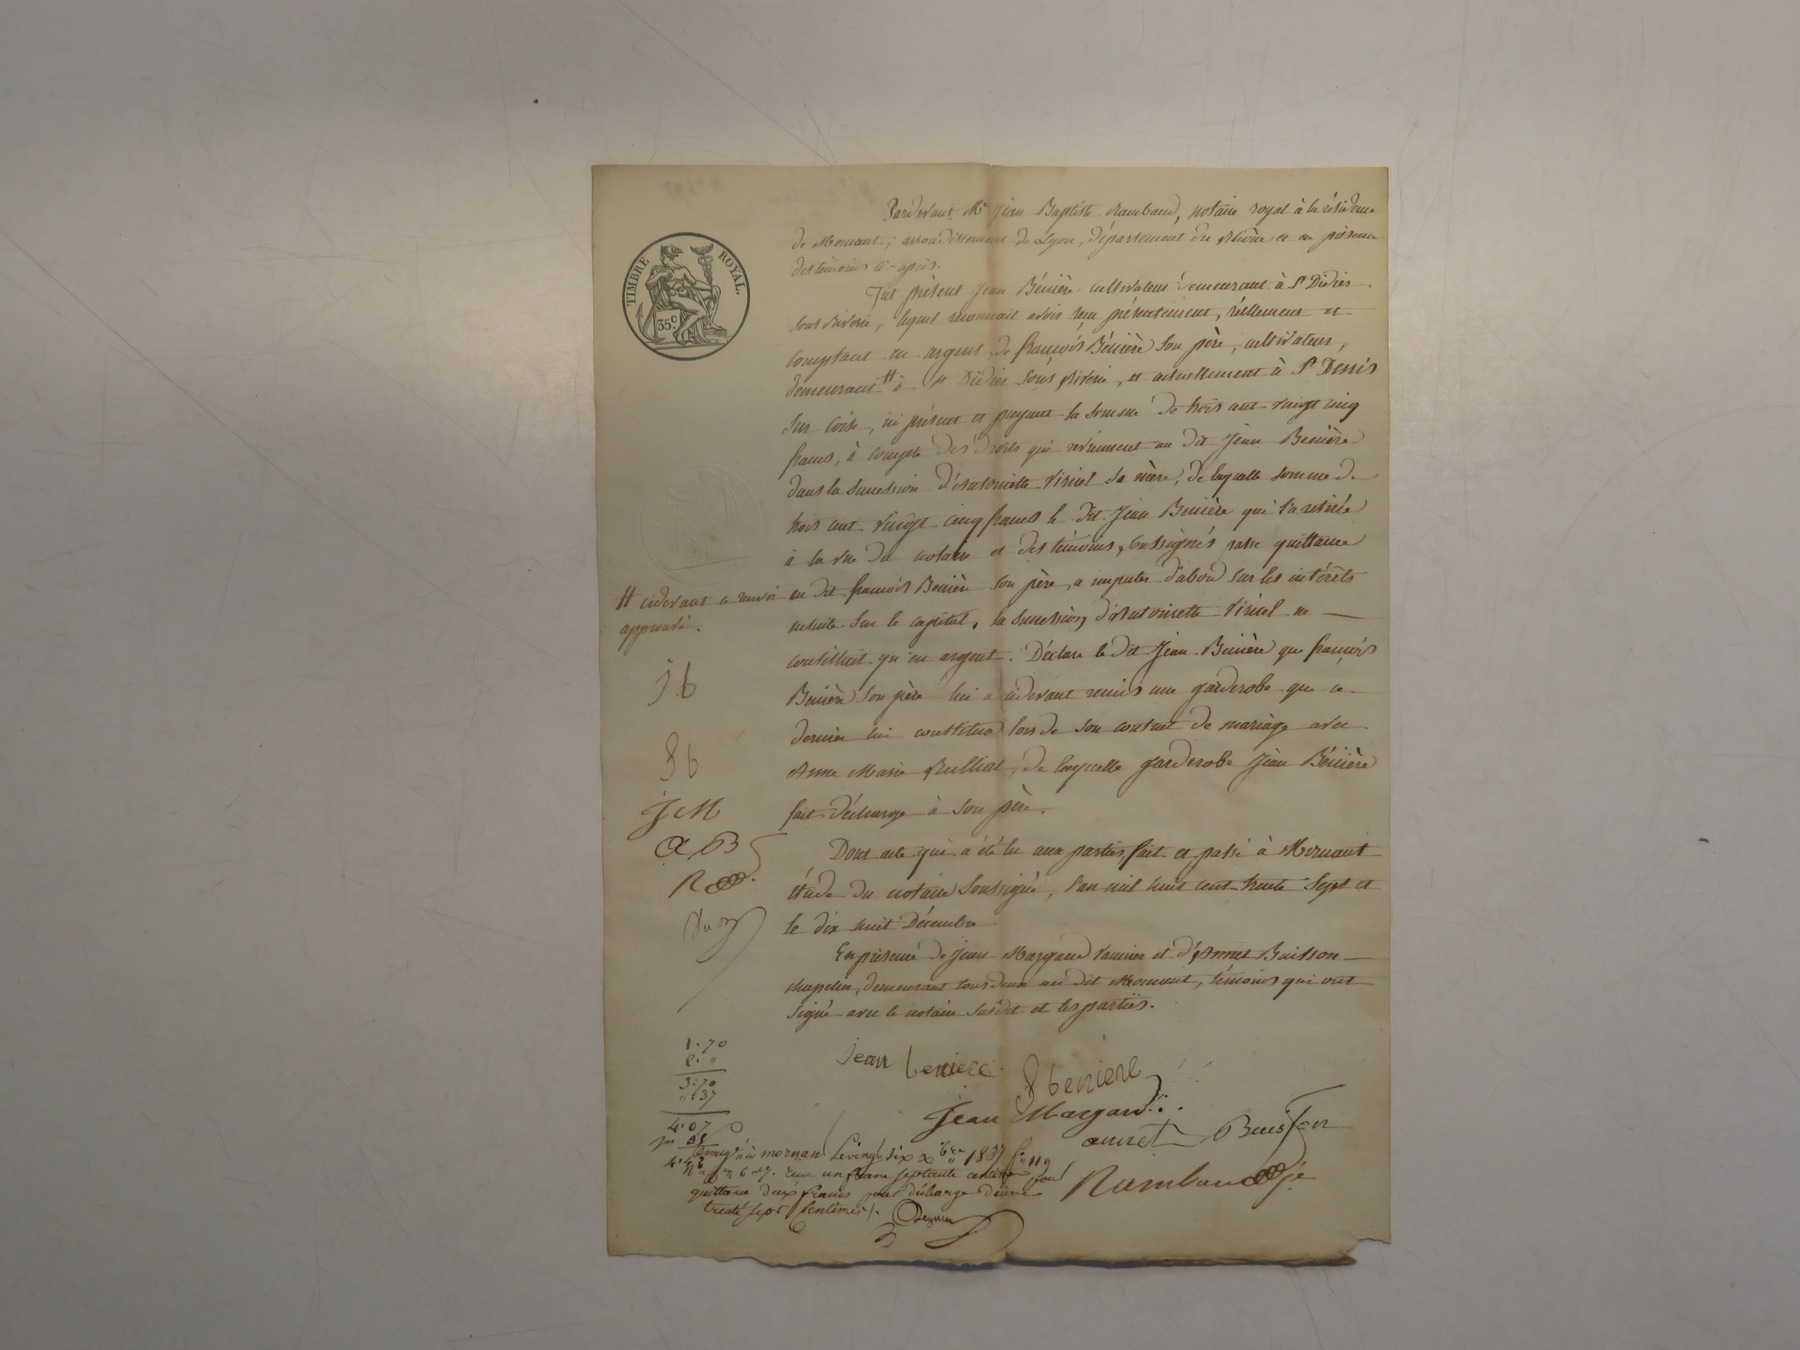 TIMBRE ROYAL.
35.c
Pardevant Me Jean Baptiste Rambaud, notaire royal à la résidence
de Mornant, arrondissement de Lyon, département du Rhône et en présence
des témoins ci-après.
Fut présent Jean Bénière cultivateur demeurant à St Didier
sous Riverie, lequel reconnait avoir reçu présentement, réellement et
comptant en argent, de françois Bénière son père, cultivateur,
demeurant # à St Didier sous Riverie, et actuellement à St Denis
sur Coise, ici présent et payant la somme de trois cent vingt cinq
francs, à compte des droits qui reviennent au dit Jean Benière
dans la succession d'antoinette Viricel sa mère, de laquelle somme de
trois cent vingt cinq francs le dit Jean Benière qui l'a retirée
à la vue du notaire et des témoins, soussignés passe quittance
au dit françois Benière son père, a imputer d'abord sur les intérêts
ensuite sur le capital, la succession d'antoinette Viricel ne
consistait qu'en argent. Déclare le dit Jean Benière que françois
Benière son père lui a cidevant remis une garderobe que ce
dernier lui constitua lors de son contrat de mariage avec
Anne Marie Rulliat, de laquelle garderobe Jean Bénière
fait décharge à son père.
Dont acte qui a été lu aux parties, fait et passé à Mornant
étude du notaire soussigné, l'an mil huit cent trente sept et
le dix huit Décembre
En présence de Jean Margand et d'Annet Buisson
chapelier, demeurant tous deux au dit Mornant, témoins qui ont
signé avec le notaire susdit et les parties.
# cidevant ce renvoi
approuvé.
J b
f b
J M
a B
R
jean beniere
f beniere
Jean Margand
annet Buisson
Rambaud
1.70
2. "
3.70
" 37
4.07
Enreg.é à mornant Le vingt six Xbre 1837 fo 119
reçu un franc septante centimes pour
quittance deux francs pour décharge
trente sept centimes